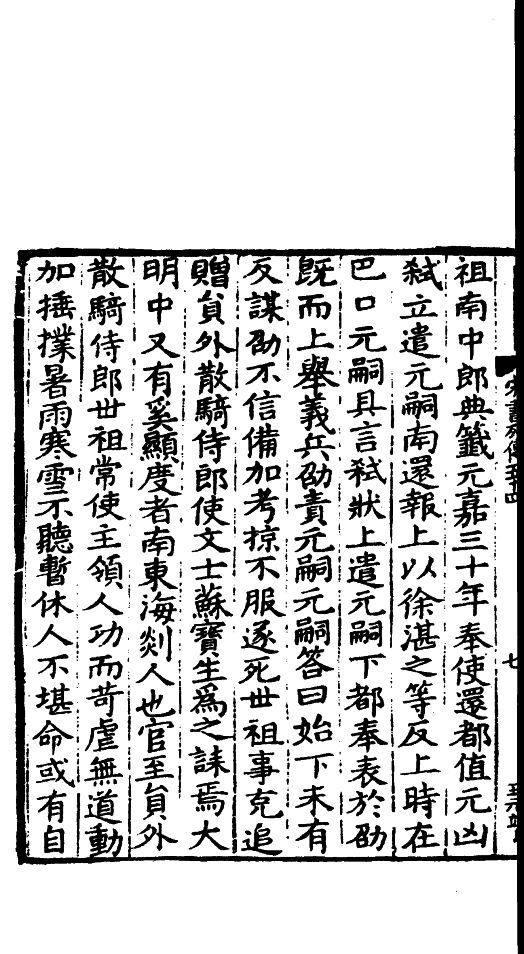 祖南中郎典籤元嘉三十年奉使還都值元凶
弑立遣元嗣南還報上以徐湛之等反上時在
巴口元嗣具言弑狀上遣元嗣下都奉表於劭
既而上舉義兵劭責元嗣元嗣答曰始下未有
反謀劭不信備加考掠不服遂死世祖事克追
贈貟外散騎侍郎使文士蘇寶生爲之誄焉大
明中又有奚顯度者南東海郯人也官至貟外
散騎侍郎世祖常使主領人功而苛虐無道動
加捶撲暑雨寒雪不聽暫休人不堪命或有自